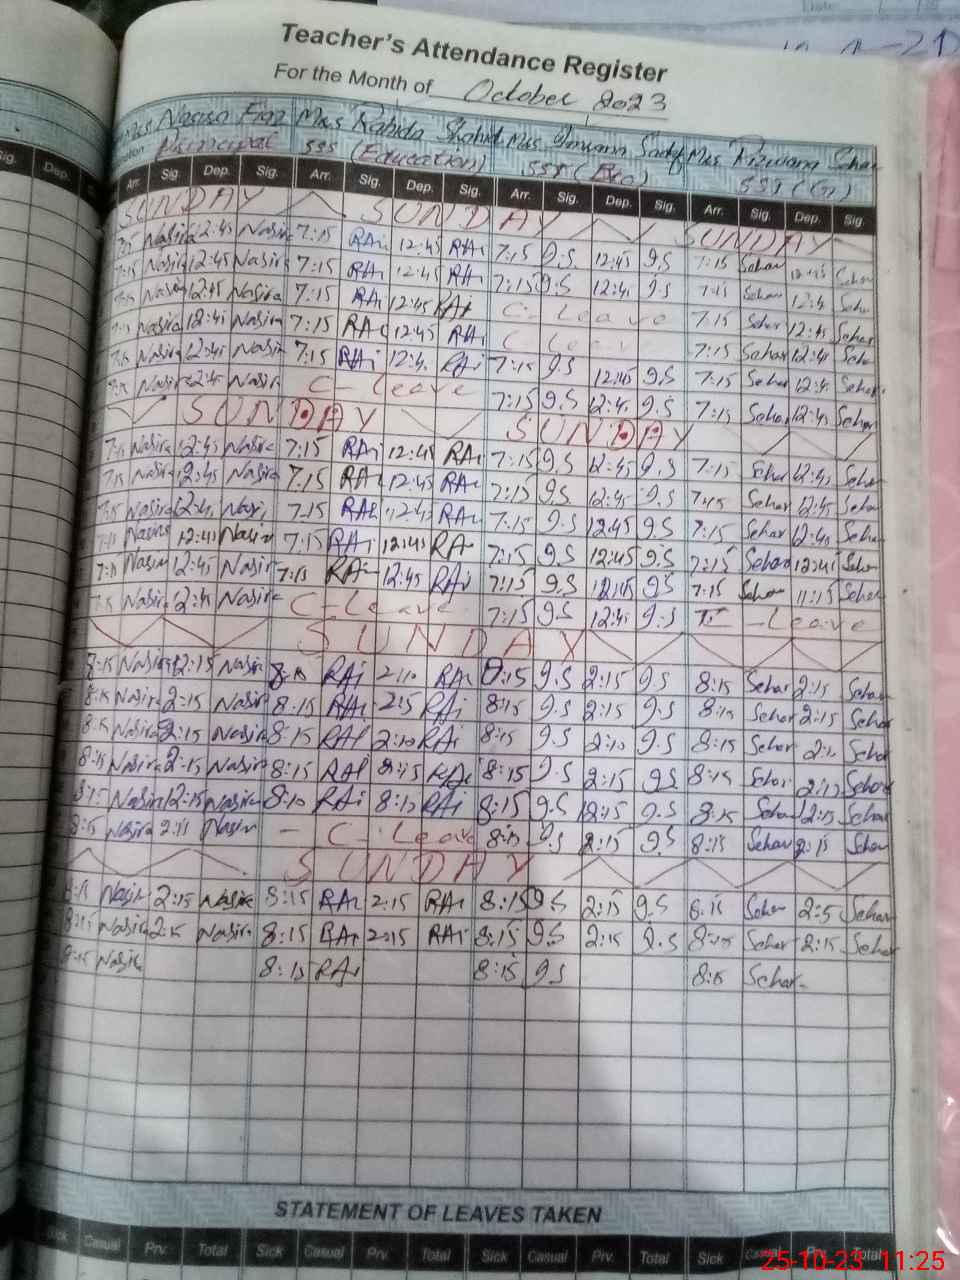 Teacher's Attendance Register
For the Month of October 2023
Mrs Rabida Mrs Mrs Rizwana Sehar
Principal SSS (Education) SST ( SST (
Sig. Dep. Arr. Sig. Dep. Sig. Arr. Sig. Dep. Sig. Arr. Sig. Dep. Sig. Arr. Sig. Dep. Sig.
SUNDAY SUNDAY SUNDAY
Nasira 12:45 Nasira 7:15 RAi 12:45 RAi 7:15 9.S 12:45 9.S 7:15 Sehar Sehar
7:15 Nasira 12:45 Nasira 7:15 RAi 12:45 RAi 7:15 9.S 12:4 9.S Sehar 12:4 Seh
Nasira 12:45 Nasira 7:15 RAi 12:45 RAi C. Leave 7:15 Sehar 12:45 Seh
Nasira 12:45 Nasira 7:15 RAi 12:45 RAi C Leave 7:15 Sehar 12:45 Seh
7:15 Nasira 12:45 Nasira 7:15 RAi 12:4 RAi 7:15 9.S 12:45 9.S 7:15 Sehar 12:4 Sehar
Nasira 12:4 Nasir C- Leave 7:15 9.S 12:4 9.S 7:15 Sehar 12:45 Sehar
SUNDAY SUNDAY
7:15 Nasira 12:45 Nasira 7:15 RAi 12:45 RAi 7:15 9.S 12:45 9.S 7:15 Sehar 12:4 Seh
7:15 Nasira 12:45 Nasira 7:15 RAi 12:45 RAi 7:15 9.S 12:45 9.S 7:15 Sehar 12:45 Seh
7:15 Nasira 12:4 Nasi 7:15 RAi 12:4 RAi 7:15 9.S 12:45 9.S 7:15 Sehar 12:45 Seh
7:15 Nasira 12:45 Nasir 7:15 RAi 12:45 RA 7:15 9.S 12:45 9.S 7:15 Sehar 12:45 Seh
7:15 Nasira 12:45 Nasir 7:15 RAi 12:45 RAi 7:15 9.S 12:45 9.S 7:15 Sehar 11:15 Sehar
7:15 Nasira 12:45 Nasira C-Leave 7:15 9.S 12:45 9.S Leave
SUNDAY
8:15 Nasira 12:15 Nasir 8:15 RAi 2:10 RAi 8:15 9.S 2:15 9.S 8:15 Sehar 2:15 Sehar
8:15 Nasira 2:15 Nasira 8:15 RAi 2:15 RAi 8:15 9.S 2:15 9.S 8:15 Sehar 2:15 Sehar
8:15 Nasira 2:15 Nasira 8:15 RAi 2:10 RAi 8:15 9.S 2:10 9.S 8:15 Sehar 2:1 Sehar
8:15 Nasira 2:15 Nasira 8:15 RAi 2:15 RAi 8:15 9.S 2:15 9.S 8:15 Sehar 2:15 Sehar
8:15 Nasira 12:15 Nasira 8:10 RAi 8:10 RAi 8:15 9.S 12:15 9.S 8:15 Sehar 12:15 Sehar
8:15 Nasira 2:15 Nasir - C. Leave 8:15 9.S 2:15 9.S 8:15 Sehar 2:15 Sehar
SUNDAY
8:15 Nasir 2:15 Nasira 8:15 RAi 2:15 RAi 8:15 9.S 2:15 9.S 8:15 Sehar 2:5 Sehar
8:15 Nasira 2:15 Nasira 8:15 RAi 2:15 RAi 8:15 9.S 2:15 9.S 8:15 Sehar 2:15 Sehar
8:15 Nasira 8:15 RAi 8:15 9.S 8:15 Sehar
STATEMENT OF LEAVES TAKEN
Sick Casual Prv. Total Sick Casual Prv. Total Sick Casual Prv. Total Sick Casual Prv. Total
25-10-23 11:25